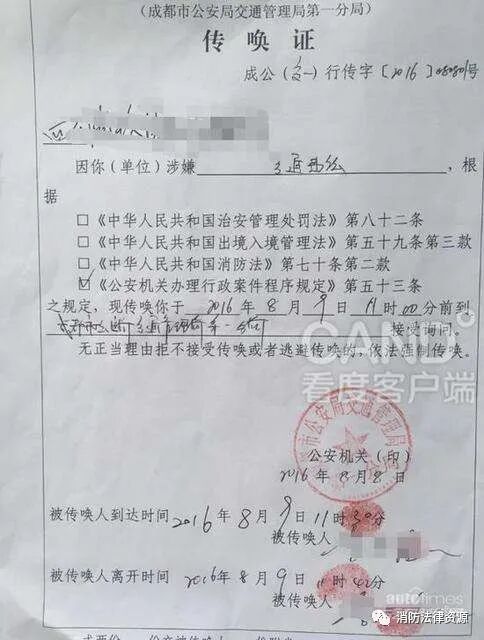 (成都市公安局交通管理局第一分局)
传唤证
成公(交一)行传字〔2016〕号
因你(单位)涉嫌 交通违法 ,根
据
□《中华人民共和国治安管理处罚法》第八十二条
□《中华人民共和国出境入境管理法》第五十九条第三款
□《中华人民共和国消防法》第七十条第二款
☑《公安机关办理行政案件程序规定》第五十三条
之规定,现传唤你于 2016 年 8 月 9 日 11 时 00 分前到
成都市公安局交通管理局第一分局 接受询问。
无正当理由拒不接受传唤或者逃避传唤的,依法强制传唤。
CAND
看度客户端
市公安局交通管理局
公安机关(印)
2016年8月8日
被传唤人到达时间2016年8月9日11时30分
被传唤人
被传唤人离开时间2016年8月9日11时42分
被传唤人
autotimes
消防法律资源